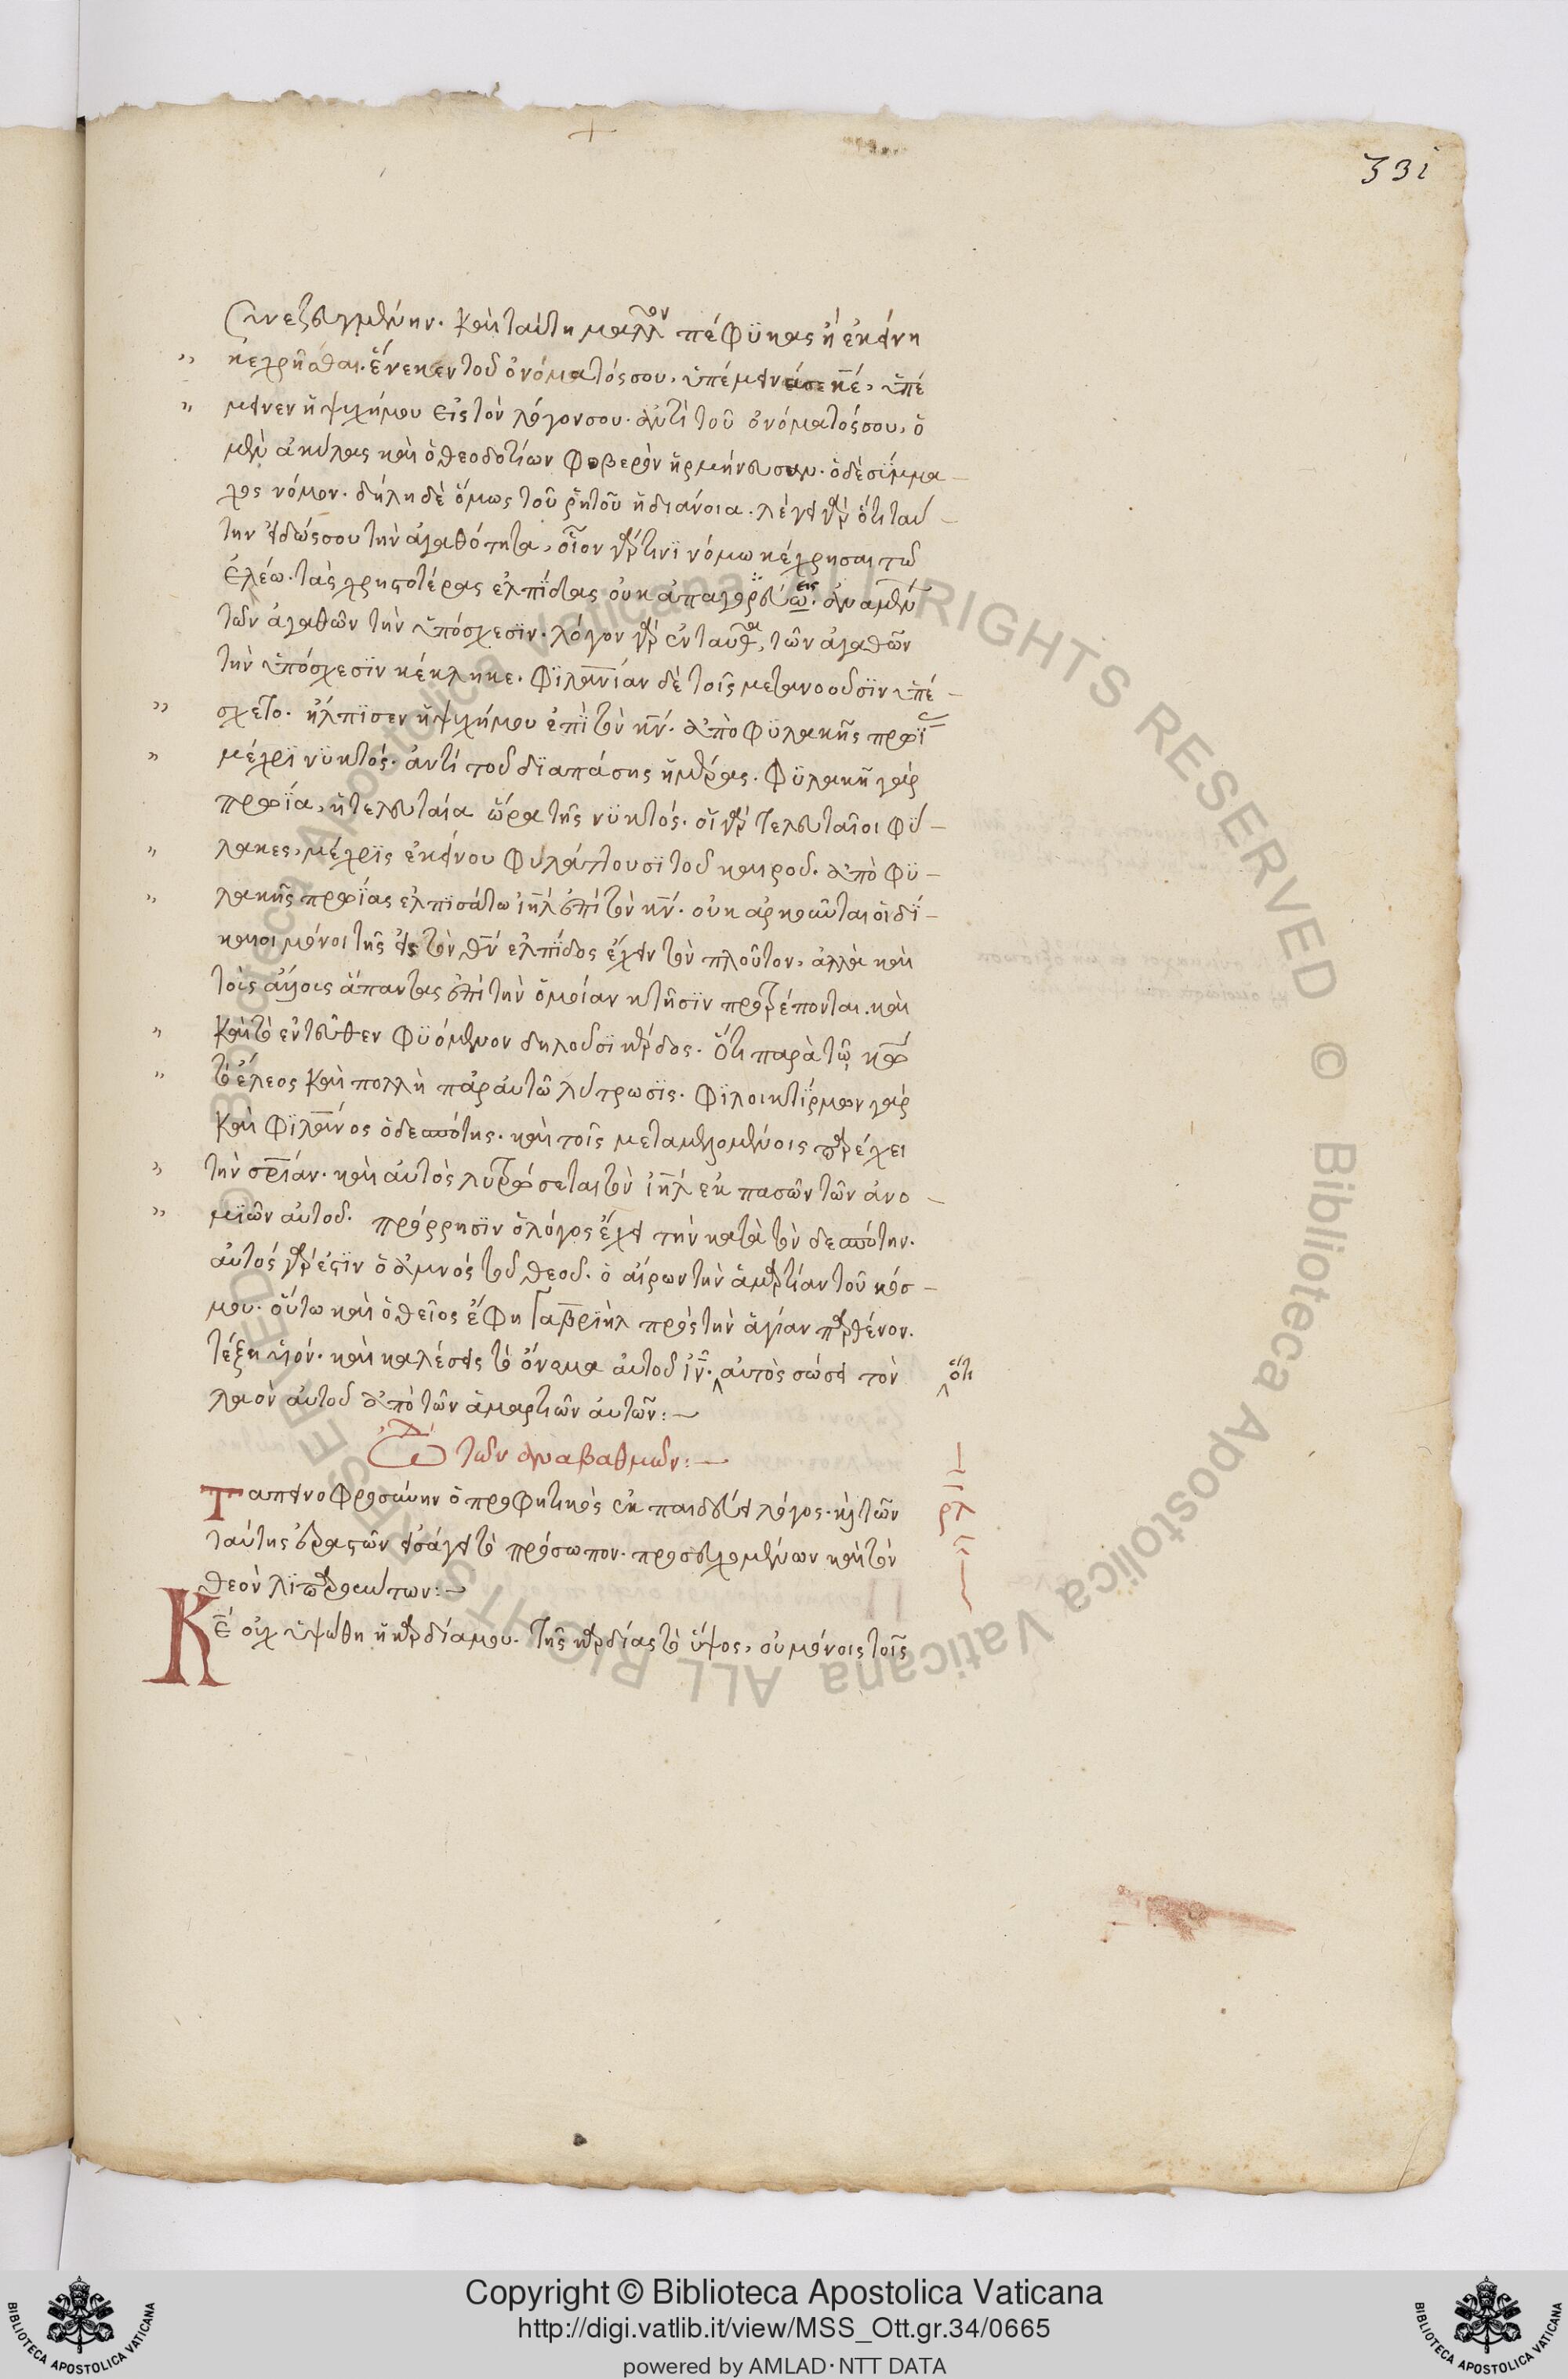 331
συνεζευγμένην. καὶ ταύτη μᾶλλον πέφϋκας ἢ ἐκείνη
κεχρῆσθαι. ἕνεκεν τοῦ ὀνόματός σου, ὑπέμεινά σε κ̅ε̅, ὑπέ
μεινεν ἡ ψυχή μου εἰς τὸν λόγον σου. ἀντὶ τοῦ ὀνόματός σου, ὁ
μὲν ἀκύλας καὶ ὁ θεοδοτίων φοβερὸν ἡρμήνευσαν. ὁ δὲ σύμμα–
χος νόμον. δήλη δὲ ὅμως τοῦ ῥητοῦ ἡ διάνοια. λέγει γὰρ ὅτι ταύ–
την εἰδώς σου τὴν ἀγαθότητα, οἷον γάρ τινϊ νόμω κέχρησαι τῶ
ἐλέω. τὰς χρηστοτέρας ἐλπίδας οὐκ ἀπαγορεύω. ἀναμένω
τῶν ἀγαθῶν τὴν ὑπόσχεσϊν. λόγον γὰρ ἐνταῦθα, τῶν ἀγαθῶν
τὴν ὑπόσχεσϊν κέκληκε. φϊλαν̅ίαν δὲ τοῖς μετανοοῦσϊν ὑπέ–
σχετο. ἤλπϊσεν ἡ ψυχή μου ἐπὶ τὸν κ̅ν̅. ἀπὸ φϋλακῆς πρωῒ
μέχρϊ νϋκτός. ἀντὶ τοῦ δϊαπάσης ἡμέρας. φϋλακὴ γὰρ
πρωΐα, ἡ τελευταία ὥρα τῆς νϋκτός. οἱ γὰρ τελευταῖοι φύ–
λακες, μέχρϊς ἐκείνου φυλάττουσϊ τοῦ καιροῦ. ἀπὸ φϋ–
λακῆς πρωΐας ἐλπϊσάτω ἰ̅η̅λ̅ ἐπὶ τὸν κ̅ν̅. οὐκ ἀρκοῦνται οἱ δί–
καιοι μόνοι τῆς εἰς τὸν θ̅ν̅ ἐλπίδος ἔχειν τὸν πλοῦτον, ἀλλὰ καὶ
τοὶς ἄλλοις ἅπαντας ἐπὶ τὴν ὁμοίαν κτῆσϊν προτρέπονται. καὶ
καὶ τὸ ἐντεῦθεν φϋόμενον δηλοῦσϊ κέρδος. ὅτι παρὰ τῶ κ̅ω̅
τὸ ἔλεος καὶ πολλὴ παρ αὐτῶ λύτρωσϊς. φϊλοικτίρμων γὰρ
καὶ φϊλάν̅ος ὁ δεσπότης. καὶ τοῖς μεταμελομένοις παρέχει
τὴν σ̅ρίαν. καὶ αὐτὸς λυτρώσεται τὸν ἰ̅η̅λ̅ ἐκ πασῶν τῶν ἀνο–
μϊῶν αὐτοῦ. πρόρρησϊν ὁ λόγος ἔχει τὴν κατὰ τὸν δεσπότην.
αὐτὸς γάρ ἐστϊν ὁ ἀμνὸς τοῦ θεοῦ. ὁ αἴρων τὴν ἁμαρτίαν τοῦ κόσ–
μου. οὕτω καὶ ὁ θεῖος ἔφη γαβρϊὴλ πρὸς τὴν ἁγίαν παρθένον.
τέξη υἱόν. καὶ καλέσεις τὸ ὄνομα αὐτοῦ ἰ̅ν̅. αὐτὸς σώσει τὸν
ὅτι
λαὸν αὐτοῦ ἀπὸ τῶν ἁμαρτιῶν αὐτῶν:–
ὠδὴ τῶν ἀναβαθμῶν:–
ρ̅λ̅
Ταπεινοφροσύνην ὁ προφητικὸς ἐκπαιδεύει λόγος. κ(αὶ) τῶν
ταύτης ἐραστῶν εἰσάγει τὸ πρόσωπον. προσευχομένων καὶ τὸν
θεὸν λϊπαρούντων:–
Κ̅ε̅ οὐχ ὑψώθη ἡ καρδία μου. τῆς καρδίας τὸ ὕψος, οὐ μόνοις τοῖς
Copyright © Biblioteca Apostolica Vaticana
http://digi.vatlib.it/view/MSS_Ott.gr.34/0665
powered by AMLAD·NTT DATA
BIBLIOTECA APOSTOLICA VATICANA
BIBLIOTECA APOSTOLICA VATICANA
© Biblioteca Apostolica Vaticana ALL RIGHTS RESERVED © Biblioteca Apostolica Vaticana ALL RIGHTS RESERVED